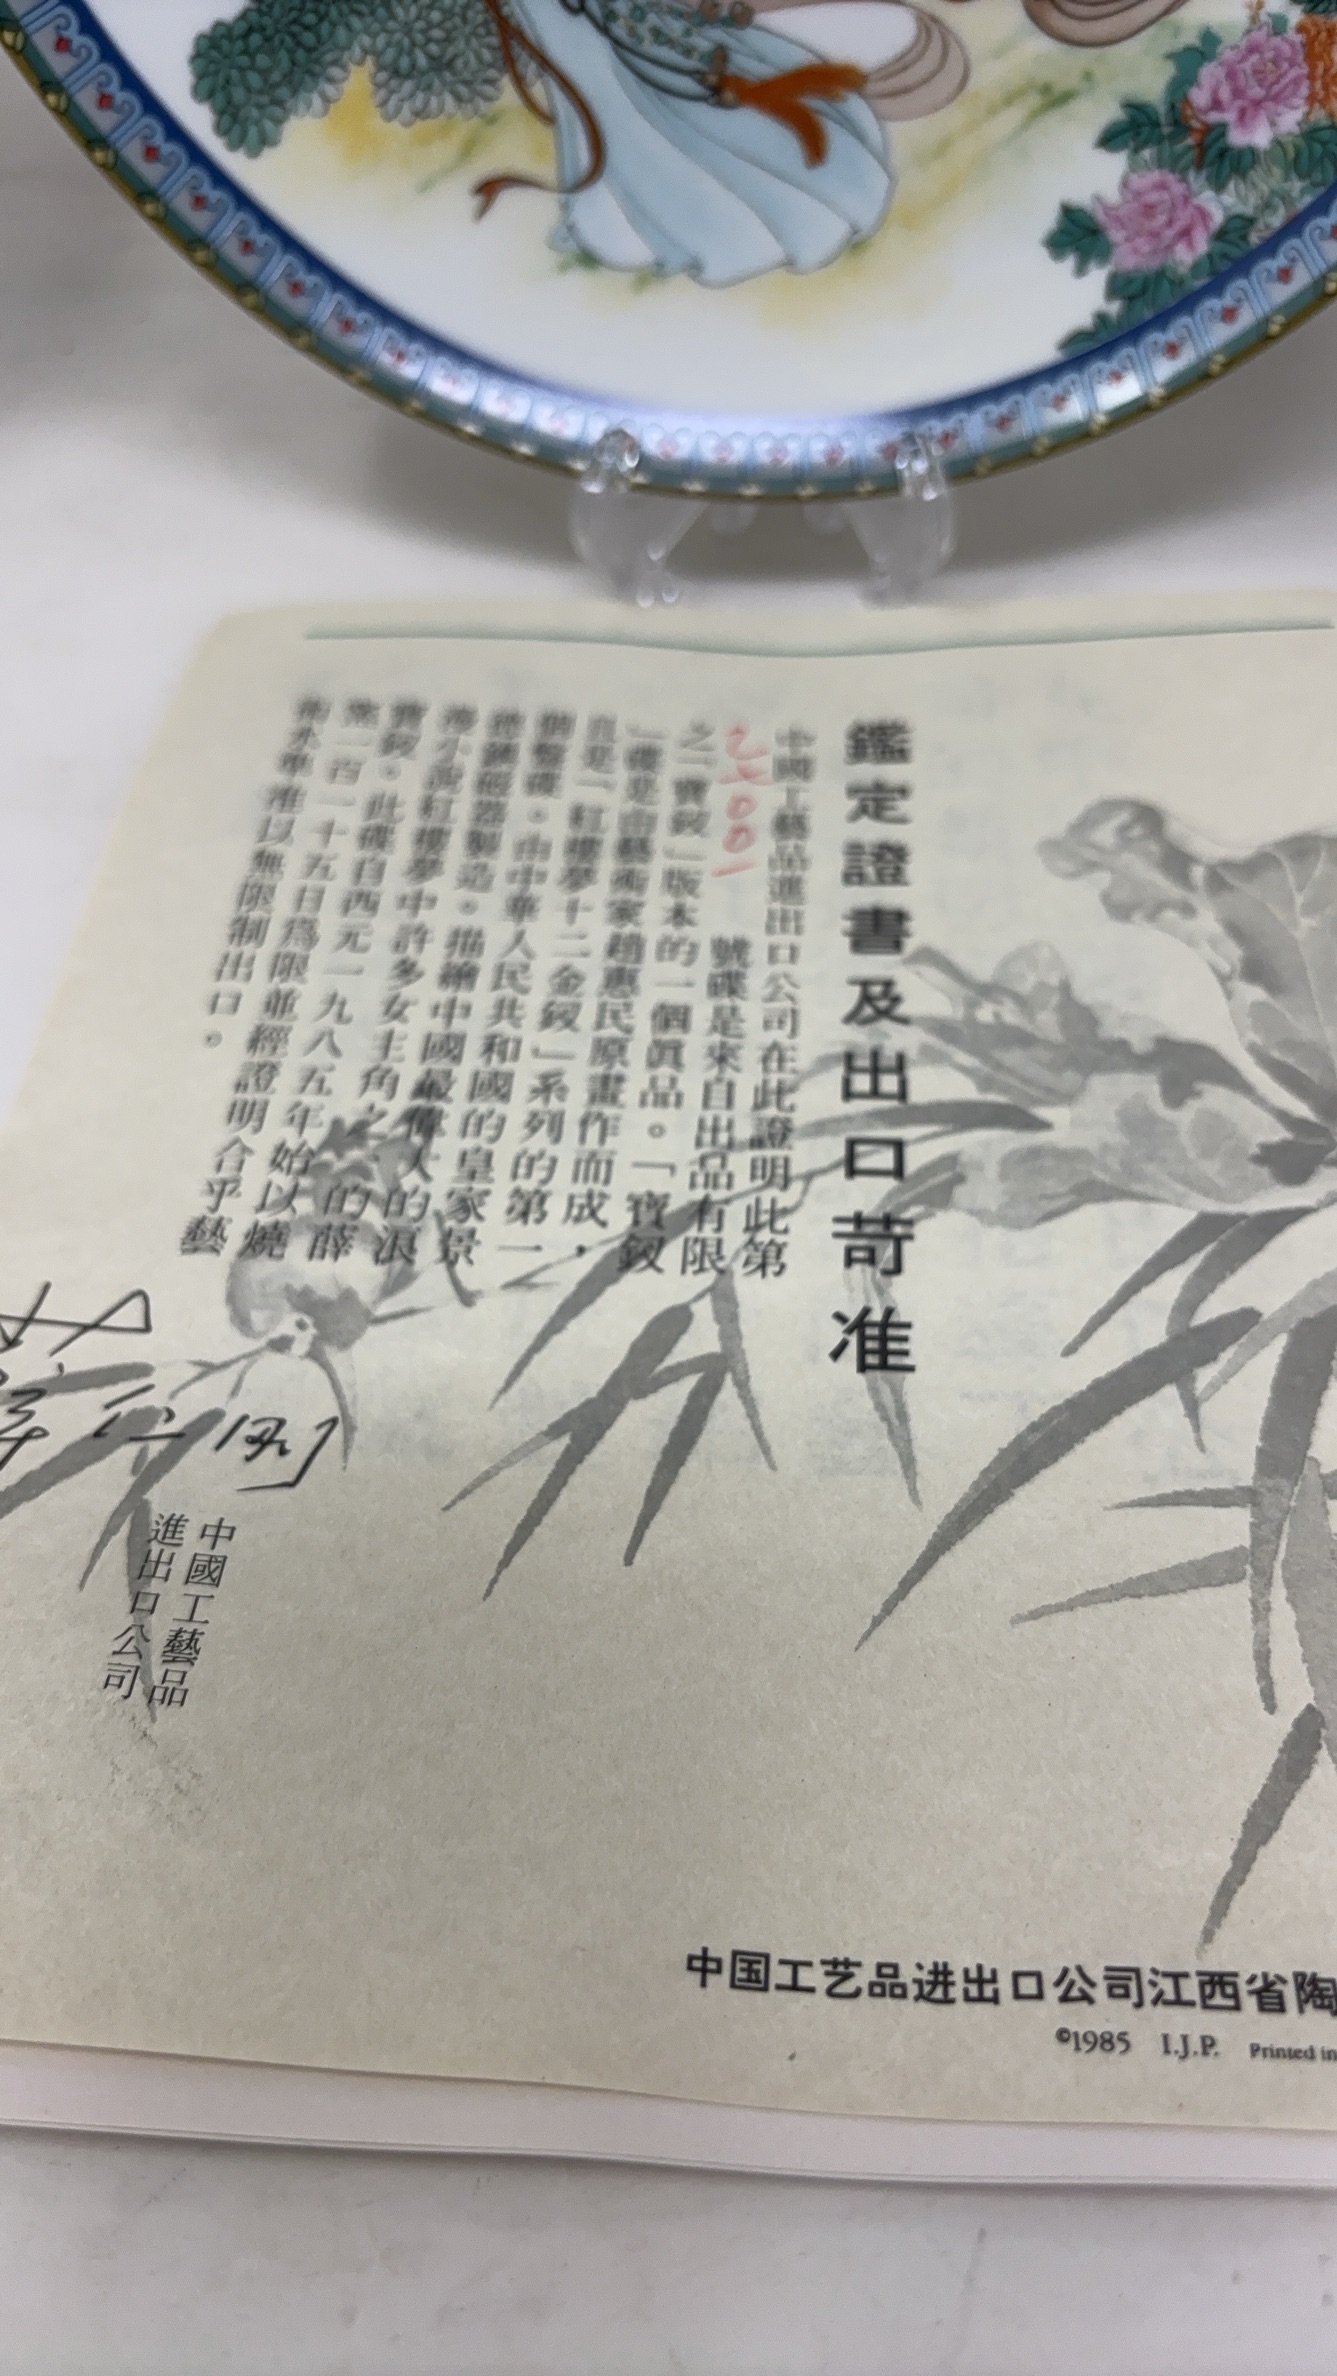 鑑定證書及出口苛准
中國工藝品進出口公司在此證明此第
號碟是來自出品有限
之「寶釵」版本的一個眞品。「寶釵
」碟是由藝術家趙惠民原畫作而成，
且是「紅樓夢十二金釵」系列的第一
個瓷碟。由中華人民共和國的皇家景
德鎮磁器製造。描繪中國最偉大的浪
漫小說紅樓夢中許多女主角之一的薛
寶釵。此碟自西元一九八五年始以燒
焦一百一十五日爲限並經證明合乎藝
術水準准以無限制出口。
中國工藝品
進出口公司
中国工艺品进出口公司江西省陶
©1985 I.J.P. Printed in